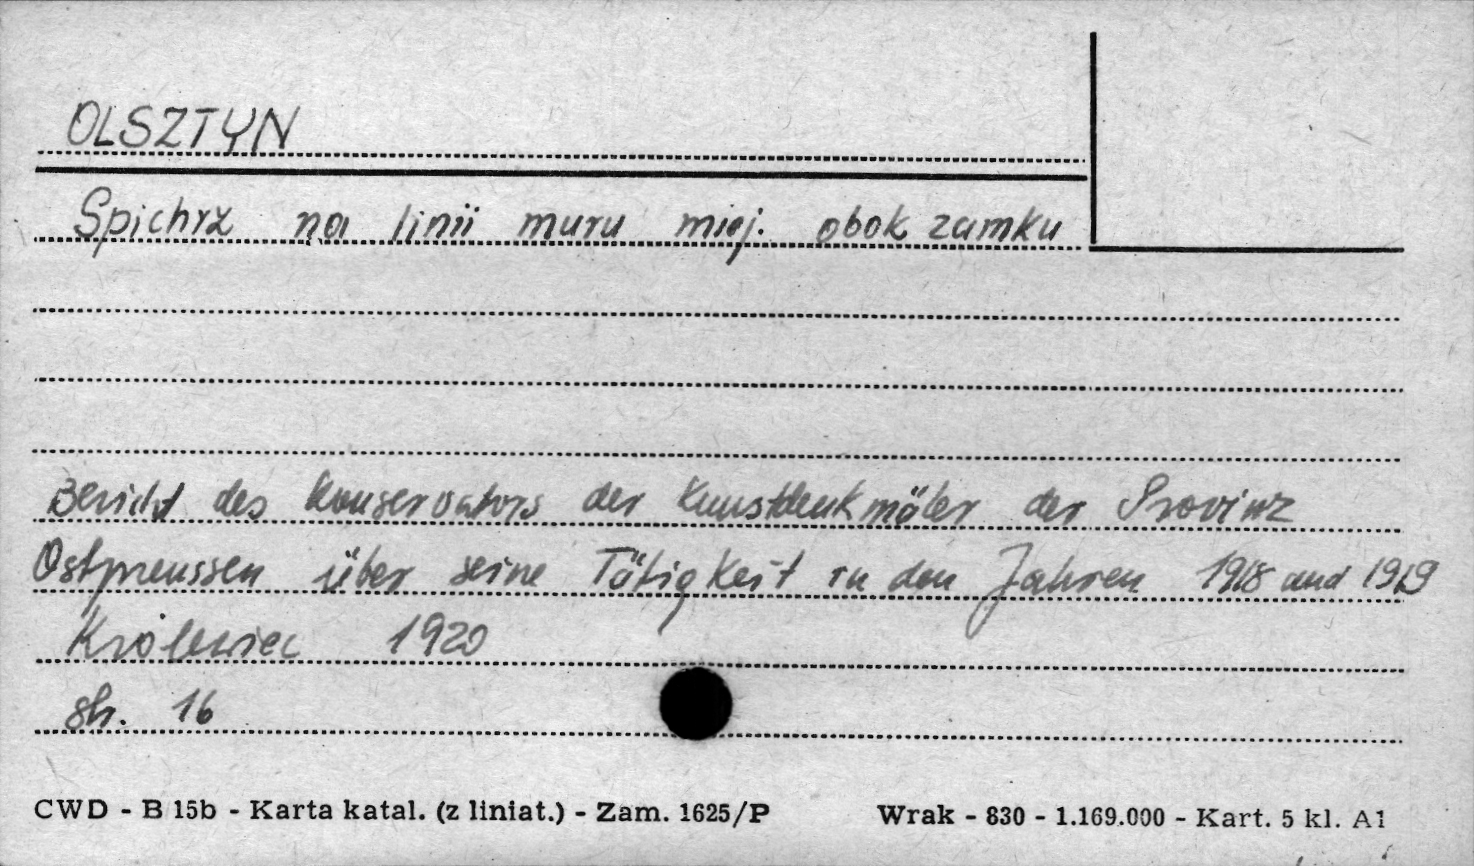 OLSZTYN
Spichrz na linii muru miej. obok zamku
Bericht des Konservators der Kunstdenkmäler der Provinz
Ostpreussen über seine Tätigkeit in den Jahren 1918 und 1919
Królewiec 1920
str. 16
CWD - B 15b - Karta katal. (z liniat.) - Zam. 1625/P Wrak - 830 - 1.169.000 - Kart. 5 kl. A1